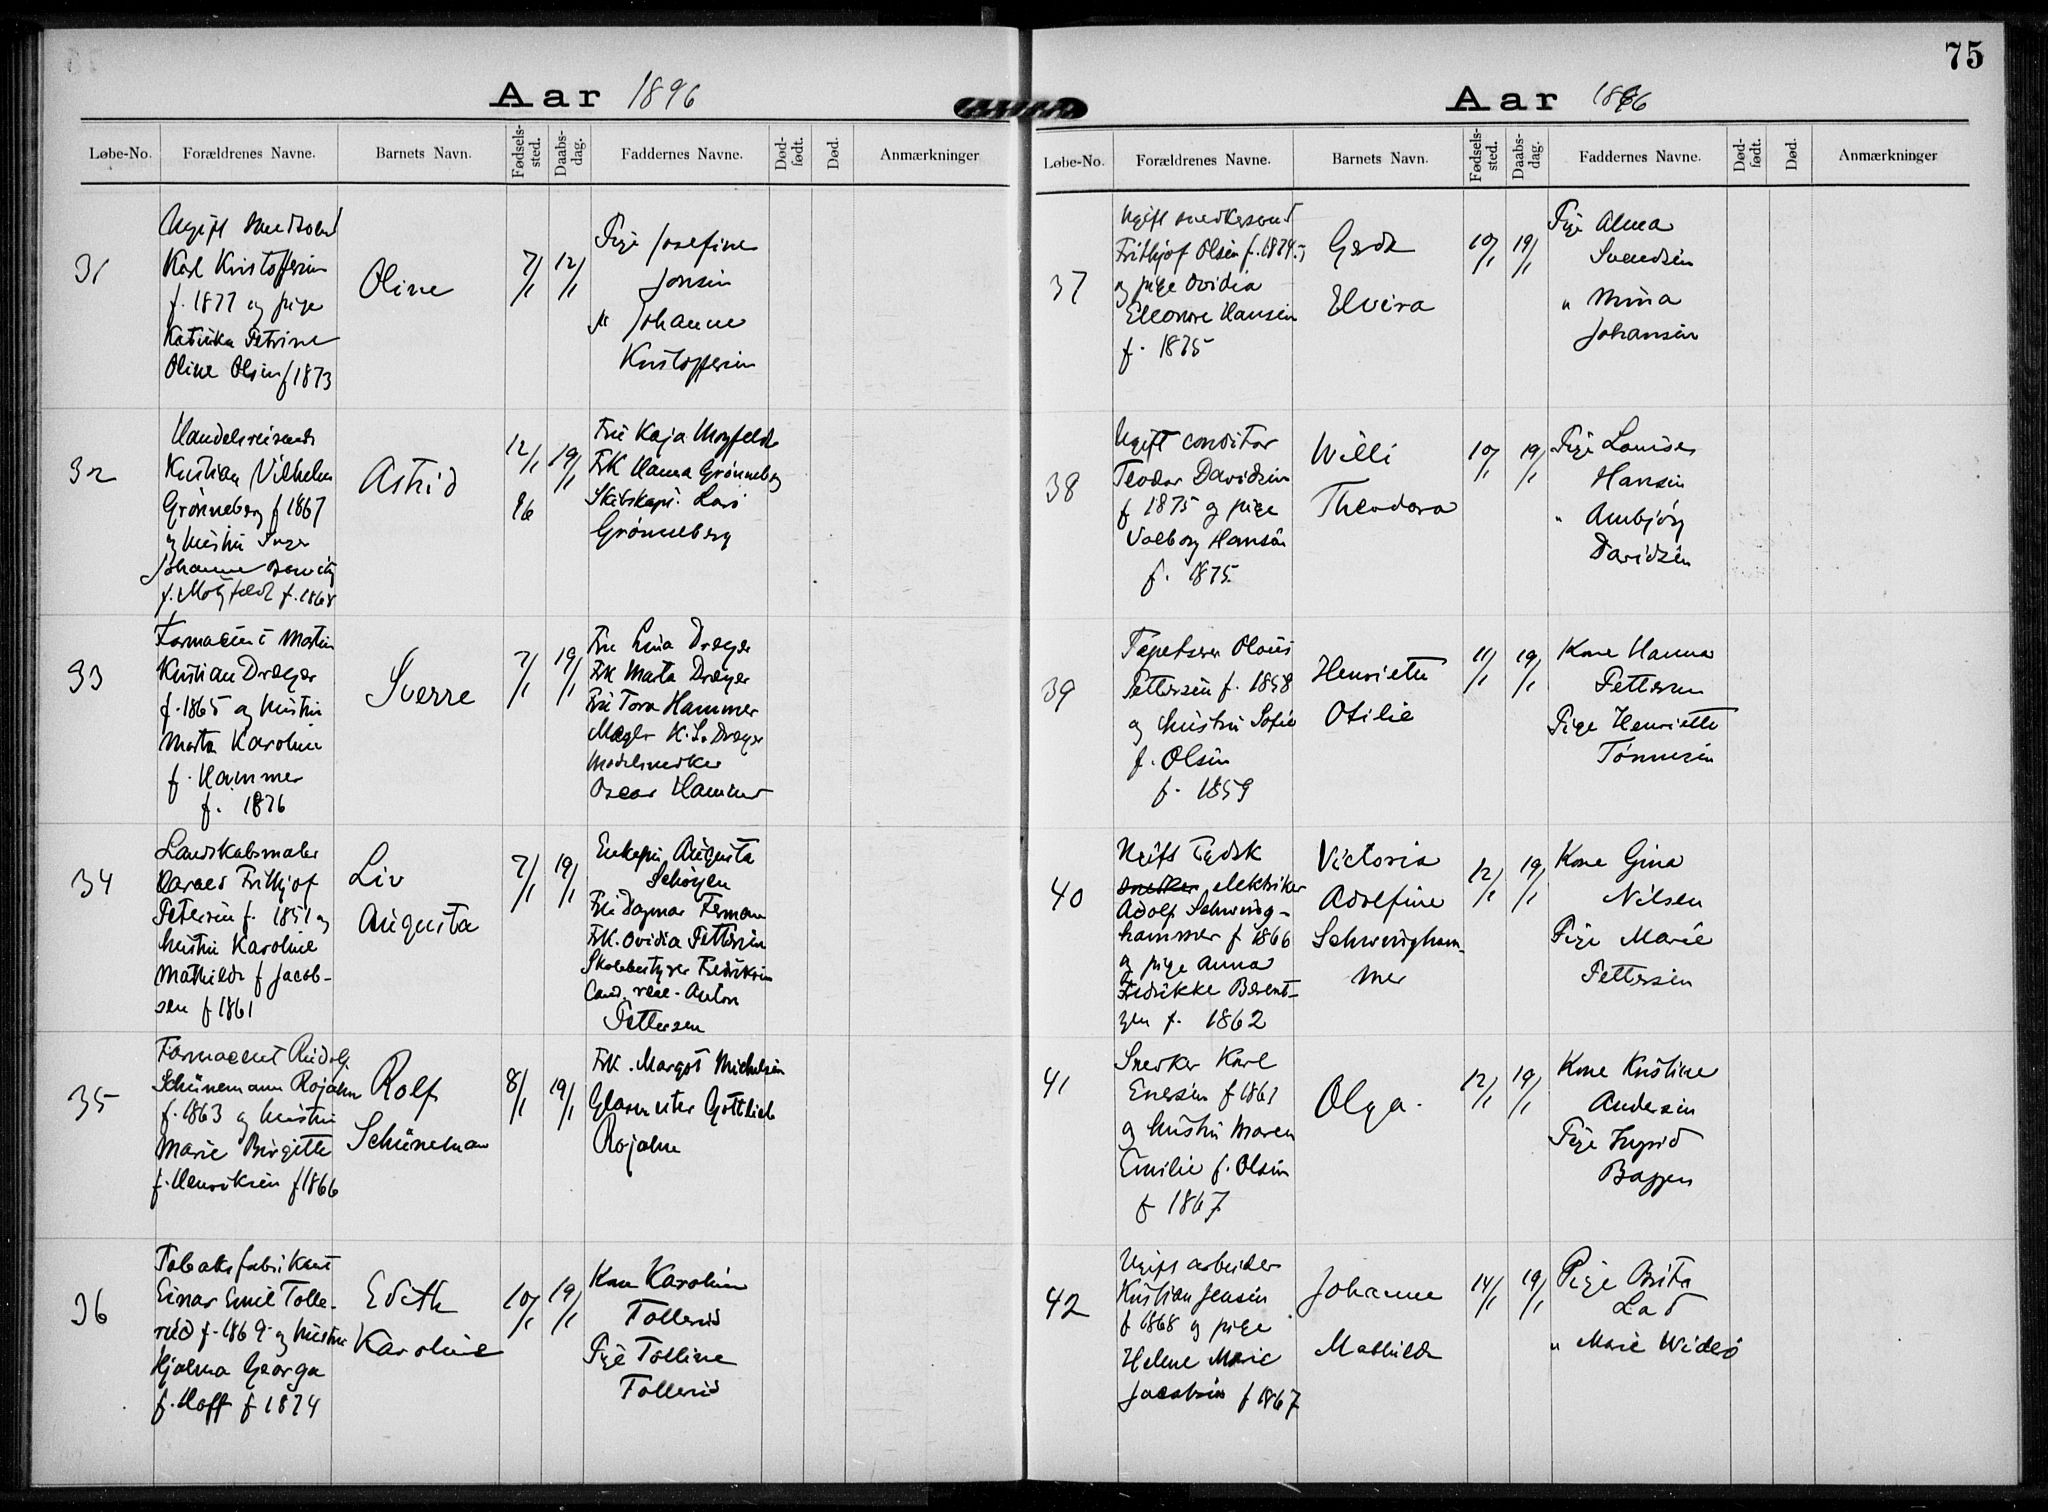 Aar 1896
Løbe-No. Forældrenes Navne. Barnets Navn. Fødsels-sted. Daabs-dag. Faddernes Navne. Død-født. Død. Anmærkninger
31
Ugift
Karl Kristoffersen
f. 1877 og pige
Katinka Petrine
Oline Olsen f 1873
Oline
7/1
12/1
Pige Josefine
Jonsen
" Johanne
Kristoffersen
32
Handelsreisende
Kristian Vilhelm
Grønneberg f 1867
og hustru Inger
Johanne
f. Motzfeldt f. 1868
Astrid
12/1
96
19/1
Fru Kaja Motzfeldt
Frk Hanna Grønneberg
Skibskapt. Lars
Grønneberg
33
Farmaceut Martin
Kristian Dræger
f. 1865 og hustru
Marta Karoline
f. Hammer
f. 1876
Sverre
7/1
19/1
Fru Lina Dræger
Frk Marta Dræger
Fru Tora Hammer
Mægler K. L. Dræger
Modelsnedker
Oscar Hammer
34
Landskabsmaler
Frithjof
Petersen f. 1851 og
hustru Karoline
Mathilde f Jacob-
sen f 1861
Liv
Augusta
7/1
19/1
Enkefru Augusta
Schøyen
Fru Dagmar
Frk. Ovidia Pettersen
Skolebestyrer Fredriksen
Cand. real. Anton
Pettersen
35
Farmaceut Rudolf
Schünemann Rojahn
f. 1863 og hustru
Marie Birgitte
f. Henriksen f 1866
Rolf
Schüneman
8/1
19/1
Frk. Margot Michelsen
Glarmester Gottlieb
Rojahn
36
Tobaksfabrikant
Einar Emil Tolle-
rud f. 1869 og hustru
Hjalma Georga
f. Hoff f 1874
Edith
Karoline
10/1
19/1
Kone Karoline
Tollerud
Pige Tolline
Tollerud
75
Aar 1896
Løbe-No. Forældrenes Navne. Barnets Navn. Fødsels-sted. Daabs-dag. Faddernes Navne. Død-født. Død. Anmærkninger
37
Ugift snedkersvend
Frithjof Olsen f. 1874
og pige Ovidia
Eleonore Hansen
f. 1875
Gerda
Elvira
10/1
19/1
Pige Alma
Svendsen
" Mina
Johansen
38
Ugift conditor
Teodor Davidsen
f 1875 og pige
Valborg Hansen
f. 1875
Willi
Theodora
10/1
19/1
Pige Louise
Hansen
" Anbjørg
Davidsen
39
Tapetserer Olaus
Pettersen f. 1858
og hustru Sofie
f. Olsen
f. 1859
Henriette
Otilie
11/1
19/1
Kone Hanna
Pettersen
Pige Henriette
Tønnesen
40
Ugift Tydsk
snedker elektriker
Adolf Schwing-
hammer f 1866
og pige Anna
Fredrikke Berent-
zen f. 1862
Victoria
Adolfine
Schwingham-
mer
12/1
19/1
Kone Gina
Nilsen
Pige Marie
Pettersen
41
Snedker Karl
Enersen f 1861
og hustru Maren
Emilie f. Olsen
f 1867
Olga.
12/1
19/1
Kone Kristine
Andersen
Pige Ingrid
Baggen
42
Ugift arbeider
Kristian Jensen
f 1868 og pige
Helene Marie
Jacobsen f 1867
Johanne
Mathilde
14/1
19/1
Pige Brita
Lad
" Marie Widsø